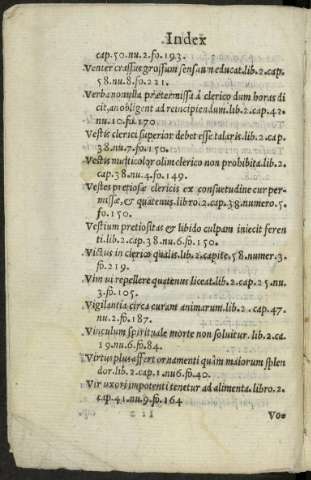 Index
cap.50.nu.2.fo.193.
Venter crassus grossum sensum non educat.lib.2.cap.
58.nu.8.fo.221.
Verba nonulla prætermissa à clerico dum horas di
cit, an obligent ad reincipiendum.lib.2.cap.42.
nu.10.fo.170
Vestis clerici superior debet esse talaris.lib.2.cap.
38.nu.7.fo.150.
Vestis multicolor olim clerico non prohibita.lib.2.
cap.38.nu.4.fo.149.
Vestes pretiosæ clericis ex consuetudine cur per-
missæ, & quatenus.libro.2.cap.38.numero.5.
fo.150.
Vestium pretiositas & libido culpam iniecit feren
ti.lib.2.cap.38.nu.6.fo.150.
Victus in clerico qualis.lib.2.capite.58.numer.3.
fo.219.
Vim vi repellere quatenus liceat.lib.2.cap.25.nu.
3.fo.105.
Vigilantia circa curam animarum.lib.2.cap.47.
nu.2.fo.187.
Vinculum spirituale morte non soluitur.lib.2.ca.
19.nu.6.fo.84.
Virtus plus affert ornamenti quàm maiorum splen
dor.lib.2.cap.1.nu6.fo.40.
Vir uxori impotenti tenetur ad alimenta.libro.2.
cap.41.nu.9.fo.164
Vo-